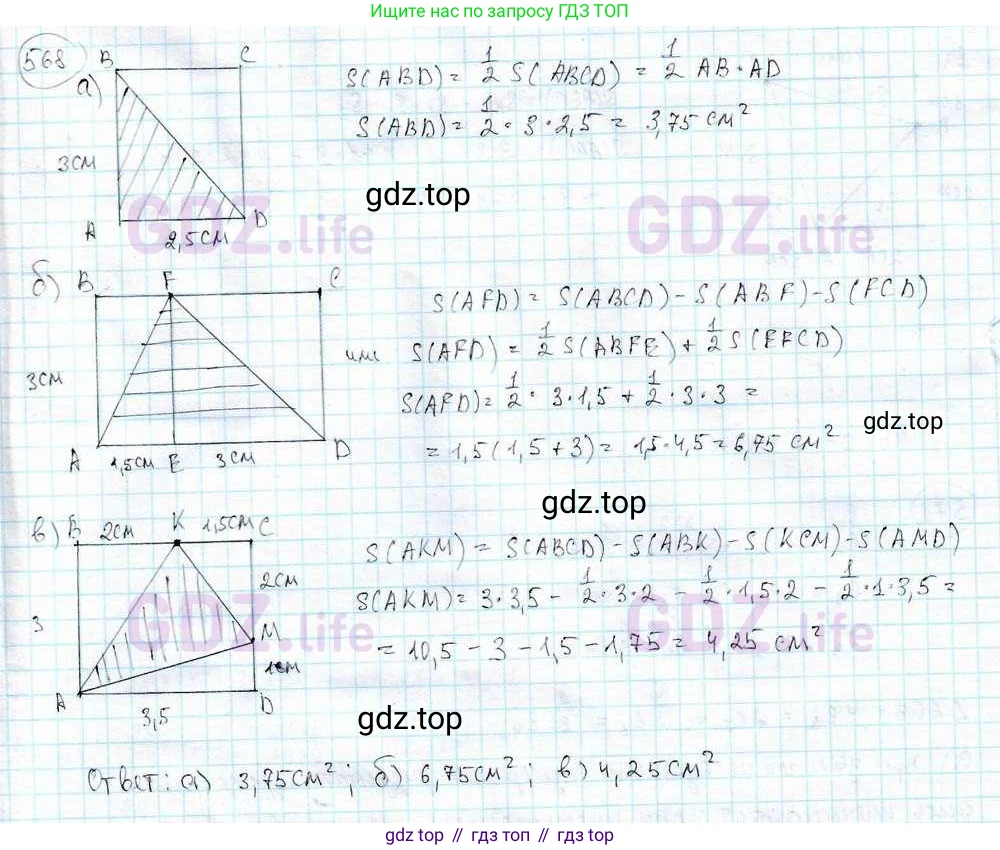 Ищите нас по запросу ГДЗ ТОП
568
а)
B C
3см
A D
2,5см
S(ABD) = 1/2 S(ABCD) = 1/2 AB·AD
S(ABD) = 1/2 · 3 · 2,5 = 3,75 см²
gdz.top
GDZ.life
GDZ.life
б)
B F C
3см
A 1,5см E 3см D
S(AFD) = S(ABCD) - S(ABF) - S(FCD)
или S(AFD) = 1/2 S(ABFE) + 1/2 S(EFCD)
S(AFD) = 1/2 · 3·1,5 + 1/2 · 3·3 =
= 1,5(1,5+3) = 1,5·4,5 = 6,75 см²
gdz.top
gdz.top
в)
B 2см K 1,5см C
2см
3
M
1см
A D
3,5
S(AKM) = S(ABCD) - S(ABK) - S(KCM) - S(AMD)
S(AKM) = 3·3,5 - 1/2·3·2 - 1/2·1,5·2 - 1/2·1·3,5 =
= 10,5 - 3 - 1,5 - 1,75 = 4,25 см²
GDZ.life
GDZ.life
gdz.top
Ответ: а) 3,75см²; б) 6,75см²; в) 4,25см²
gdz top // гдз топ // gdz top